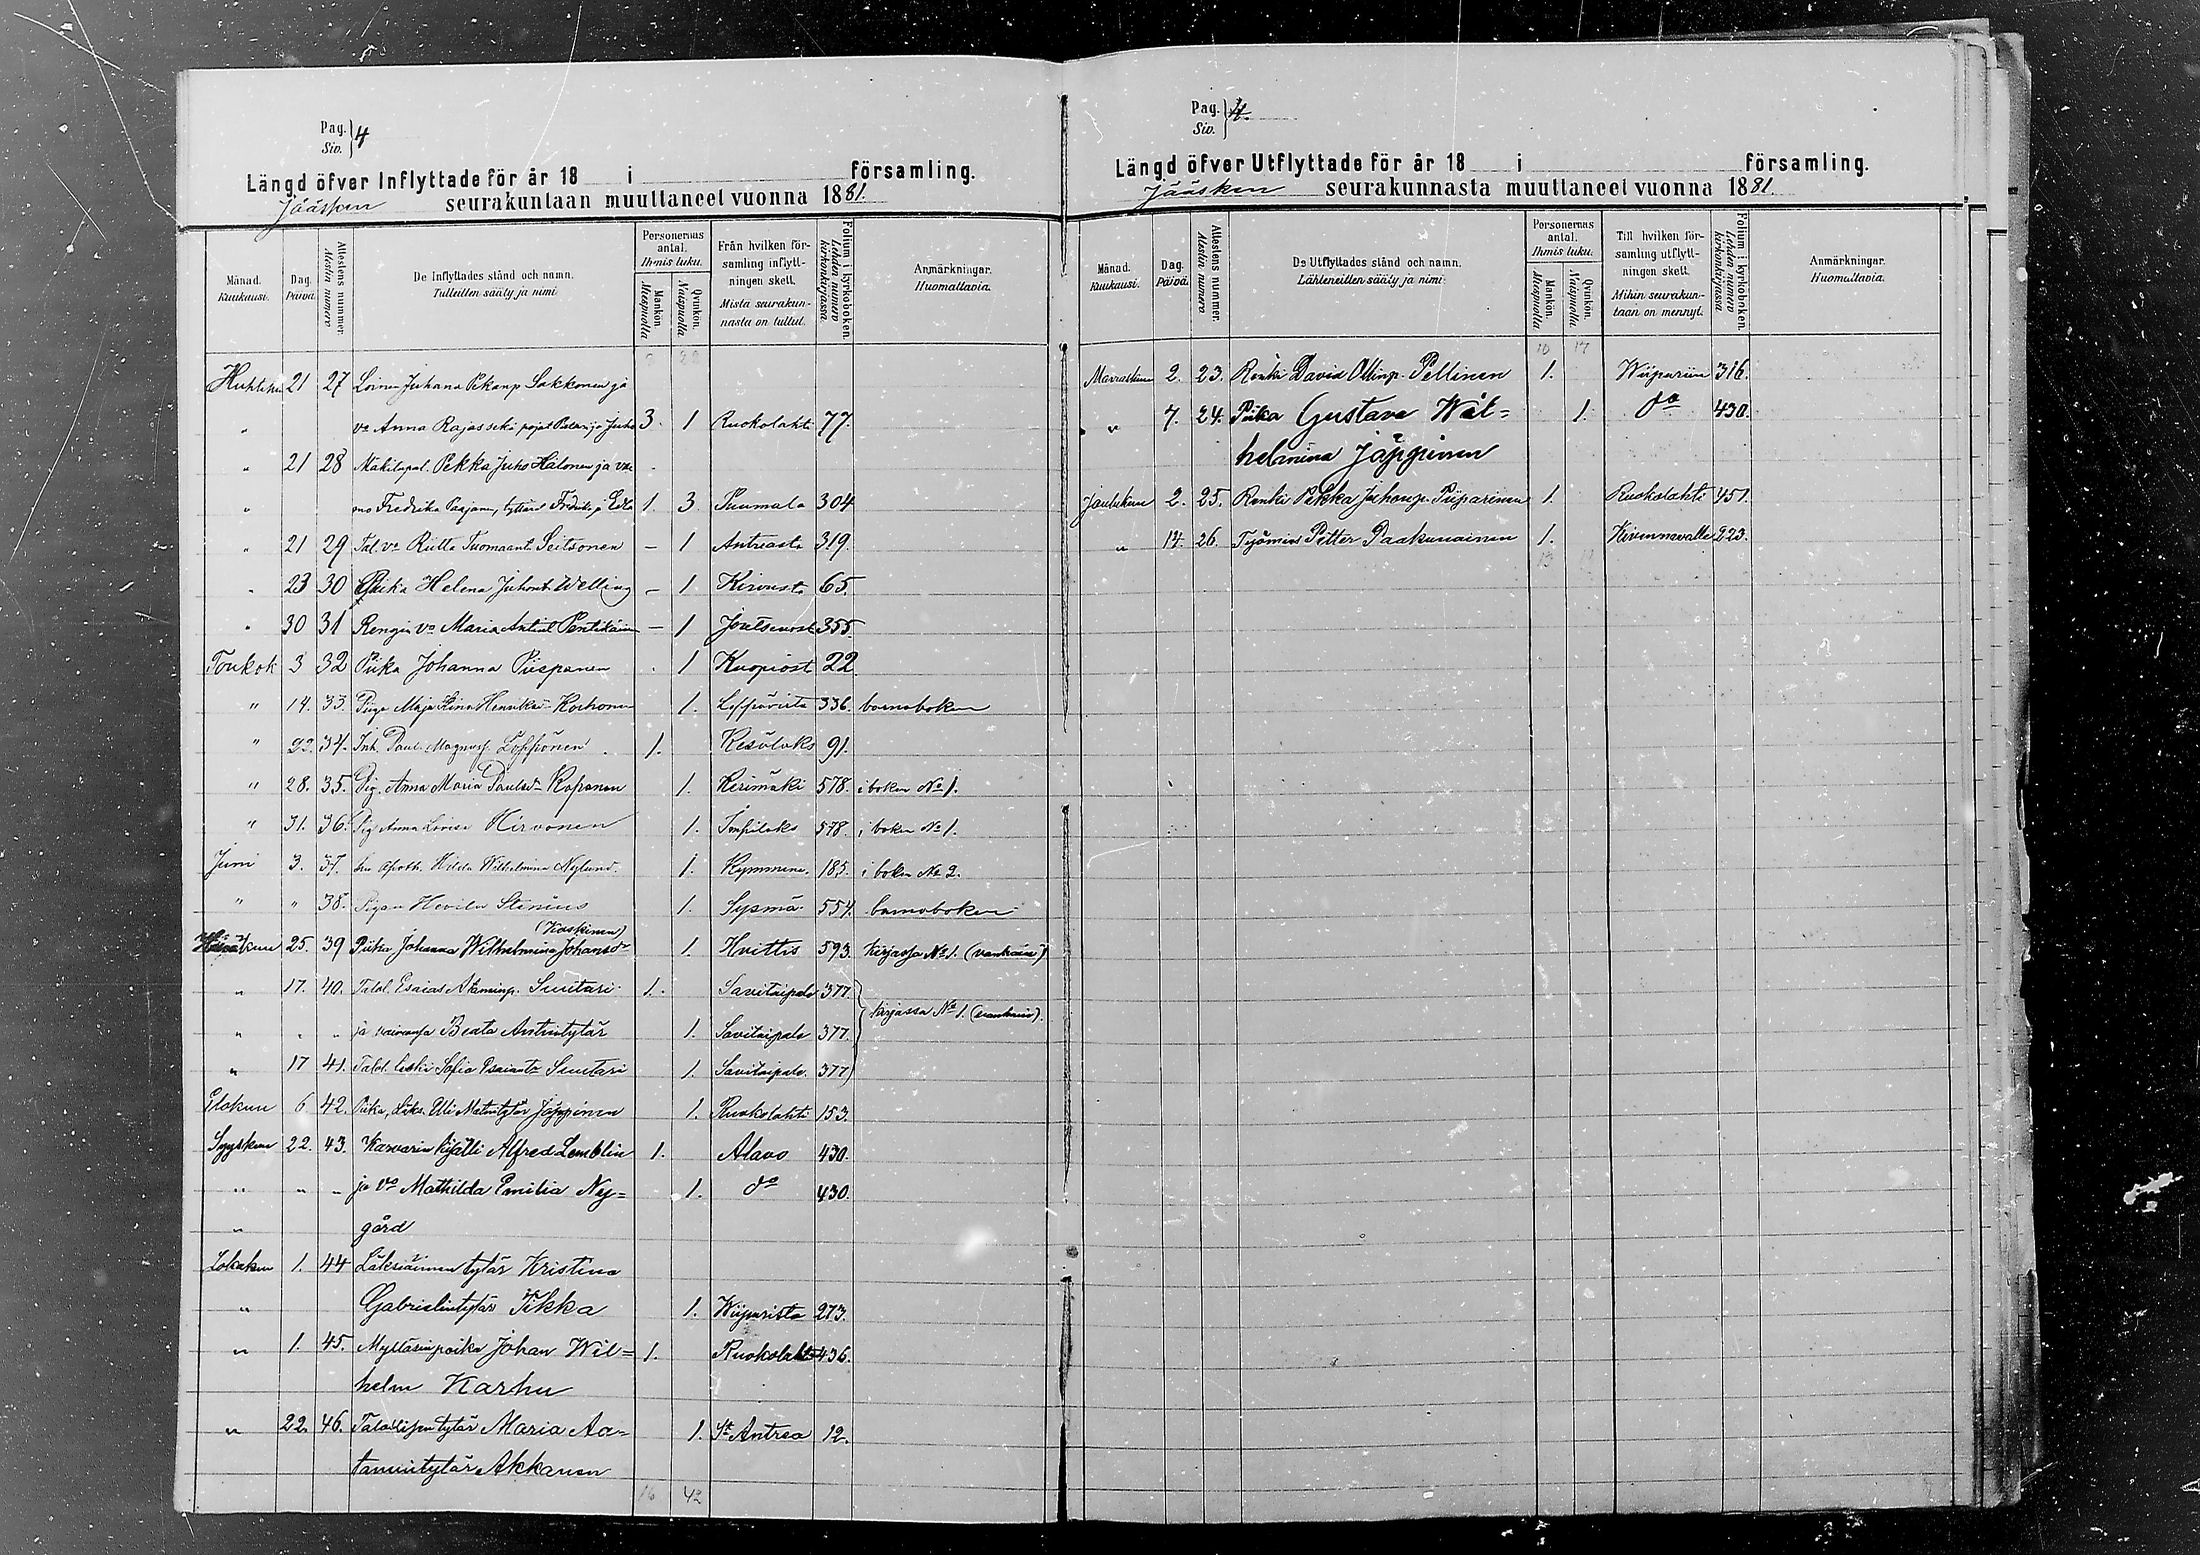 Pag. Siv. } 4
Längd öfver Inflyttade för år 18 i församling.
Jääsken seurakuntaan muuttaneet vuonna 1881.
Månad. Kuukausi.
Dag. Päivä.
Attestens nummer. Atestin numero
De Inflyttades stånd och namn. Tulleitten sääty ja nimi
Personernas antal. Ihmis luku.
Mankön. Miespuolia
Qvinkön. Naispuolia
Från hvilken församling inflyttningen skett. Mistä seurakunnasta on tullut.
Folium i kyrkoboken. Lehden numero kirkonkirjassa
Anmärkningar. Huomattavia.
21 27 Loinen Juhana Pekanp Sakkonen ja
" va Anna 3. 1 Ruokolahti 77.
" 21 28 Mäkitupal. Pekka Juho Hälonen ja vai-
" mo Fredrika 1 3 Puumala 304
" 21 29 Tal. va Riitta Tuomaant. Seitsonen — 1 Antreasta 319.
" 23 30 Piika Helena Juhont Welling — 1 Kirvusta 65.
" 30 31 Rengin va Maria Antint — 1 355.
Toukok 3 32 Piika Johanna Piispanen 1 Kuopiost 22
" 14. 33. Piga Maja Stina Henriksd. Korhonen 1. Leppävirta 336. barnaboken
" 34. Inh. Paul Magnusf. Loppönen 1. 91.
" 28. 35. Pig. Anna Maria Paulsd. Koponen 1. Kerimäki 578. i boken No 1.
" 31. 36. Pig Anna Lovisa Hirvonen 1. Impilaks 578. i boken No 1.
Juni 3. 37. Hilda Wilhelmina Nylund. 1. Kymmene. 185. i boken No 2.
" " 38. Pigan Stenius 1. Sysmä 554. barnaboken
(Koskinen)
25. 39 Piika Johanna Wilhelmina Johansd. 1. Huittis 593. Kirjassa No 1. (vankein)
" 17. 40. Talol. Esaias Smitari 1. Savitaipale 377.
" " " ja vaimonsa Beata Antintytär 1. Savitaipale 377. } Kirjassa No 1. (vankein).
" 17 41. Talol. leski Sofia Esaiant. Smitari 1. Savitaipale. 377
Elokuu 6. 42. Piika, Ulli Matintytär Jäppinen 1. Ruokolahti 153.
Syyskuu 22. 43. Karvarin kisälli Alfred Lemblin 1. Alavo 430.
" " " ja va Mathilda Emilia Ny= 1. do 430.
" gård
Lokakuu 1. 44 tytär Kristina
" Gabrielintytär Tikka 1. Wiipurista 273.
" 1. 45. Johan Wil= 1. Ruokolahti 436.
helm Karhu
" 22. 46. tytär Maria Aa= 1. St Antrea 12.
tamintytär Akkanen
16 42
Pag. Siv. } 4.
Längd öfver Utflyttade för år 18 i församling.
Jääsken seurakunnasta muuttaneet vuonna 1881.
Månad. Kuukausi.
Dag. Päivä.
Attestens nummer. Atestin numero
De Utflyttades stånd och namn. Lähteneitten sääty ja nimi
Personernas antal. Ihmis luku.
Mankön. Miespuolia
Qvinkön. Naispuolia
Till hvilken församling utflyttningen skett. Mihin seurakuntaan on mennyt.
Folium i kyrkoboken. Lehden numero kirkonkirjassa
Anmärkningar. Huomattavia.
10 17
Marraskuu 2. 23. Renki David Ollinp. Pellinen 1. Wiipuriin 316.
" 7. 24. Piika Gustava Wil= 1. do 430.
helmina Jäppinen
Joulukuu 2. 25. Renki Pekka Juhonp. Piiparinen 1. Ruokolahti 451.
" 14. 26. Työmies Petter Paakunainen 1. Kivennavalle 223.